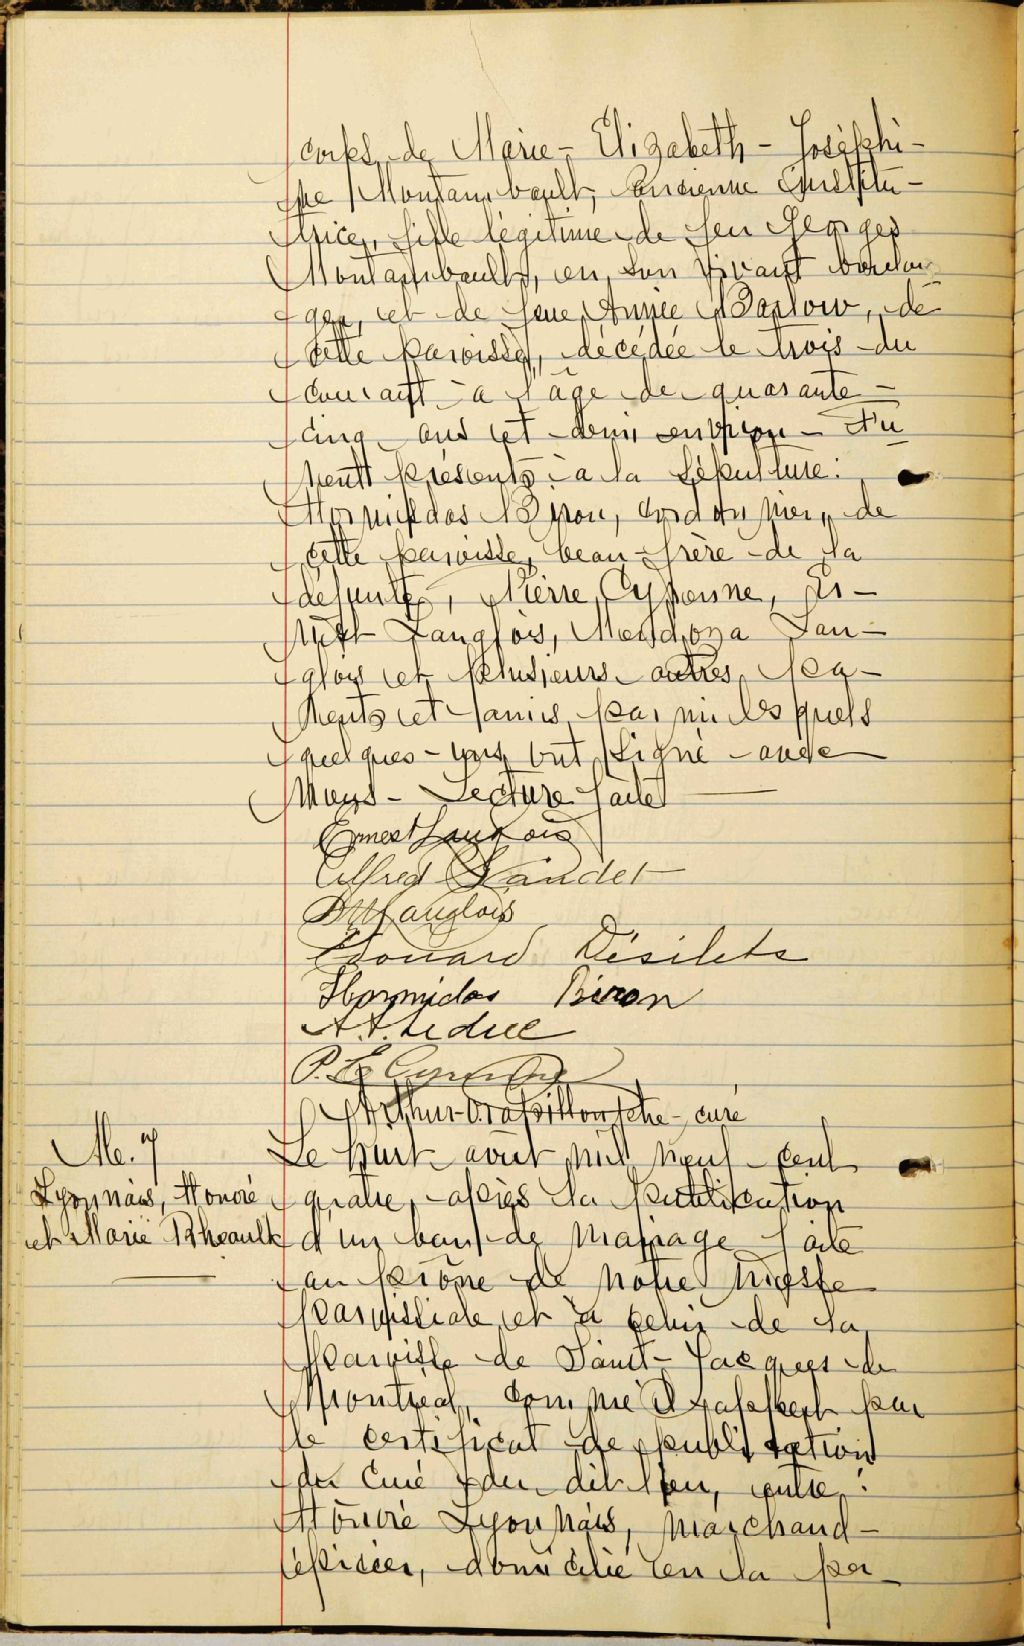 corps de Marie-Elizabeth-Joséphi-
ne Montambault, ancienne institu-
trice, fille légitime de feu Georges
Montambault, en son vivant boulan
ger, et de feue Annie Barlow, de
cette paroisse, décédée le trois du
courant à l'âge de quarante-
cinq ans et demi environ - Fu
rent présents à la sépulture:
Hormidas Biron, cordonnier, de
cette paroisse, beau-frère de la
défunte, Pierre Cyprenne, Er-
nest Langlois, Mendoza Lan-
glois et plusieurs autres pa-
rents et amis parmi lesquels
quelques-uns ont signé avec
nous - Lecture faite
Ernest Langlois
Alfred Gaudet
Langlois
Edouard Désilets
Hormidas Biron
A. A. Leduc
P. E. Cyrenne
Arthur Papillon, ptre-curé
M. 7
Lyonnais, Honoré
et Marie Rheault
Le huit août mil neuf cent
quatre, après la publication
d'un ban de mariage faite
au prône de notre messe
paroissiale et à celui de la
paroisse de Saint-Jacques de
Montréal, comme il appert par
le certificat de publication
du curé du dit lieu, entre:
Honoré Lyonnais, marchand-
épicier, domicilié en la pa-